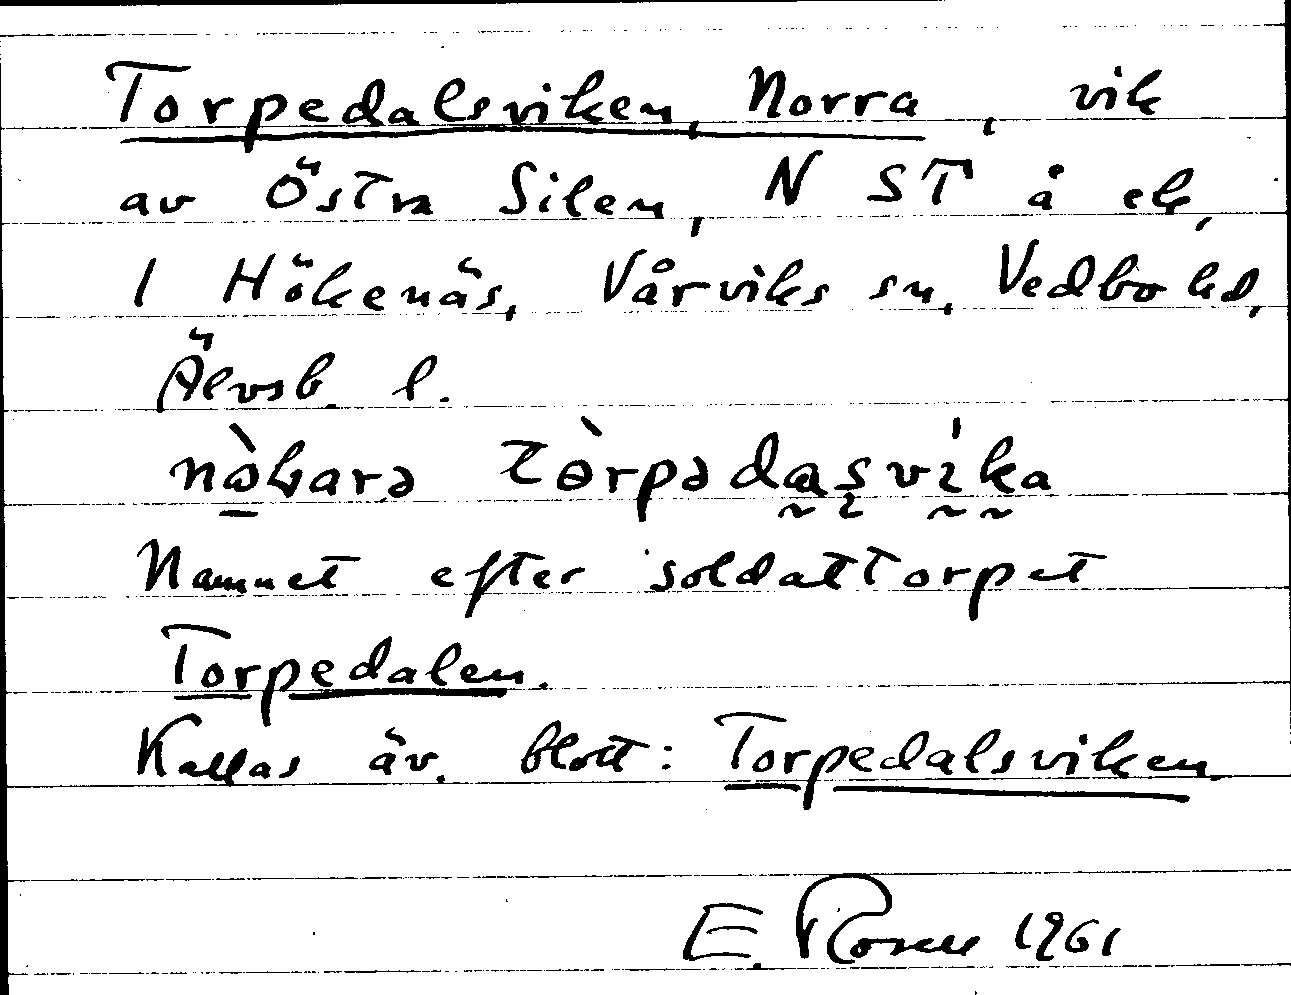 Torpedalsviken, Norra, vik
av Östra Silen, N ST å ek,
1 Hökenäs, Vårviks sn, Vedbo hd,
Älvsb. l.
tòrpədasvika
Namnet efter soldattorpet
Torpedalen.
Kallas äv. blott: Torpedalsviken.
E. Rosen 1961